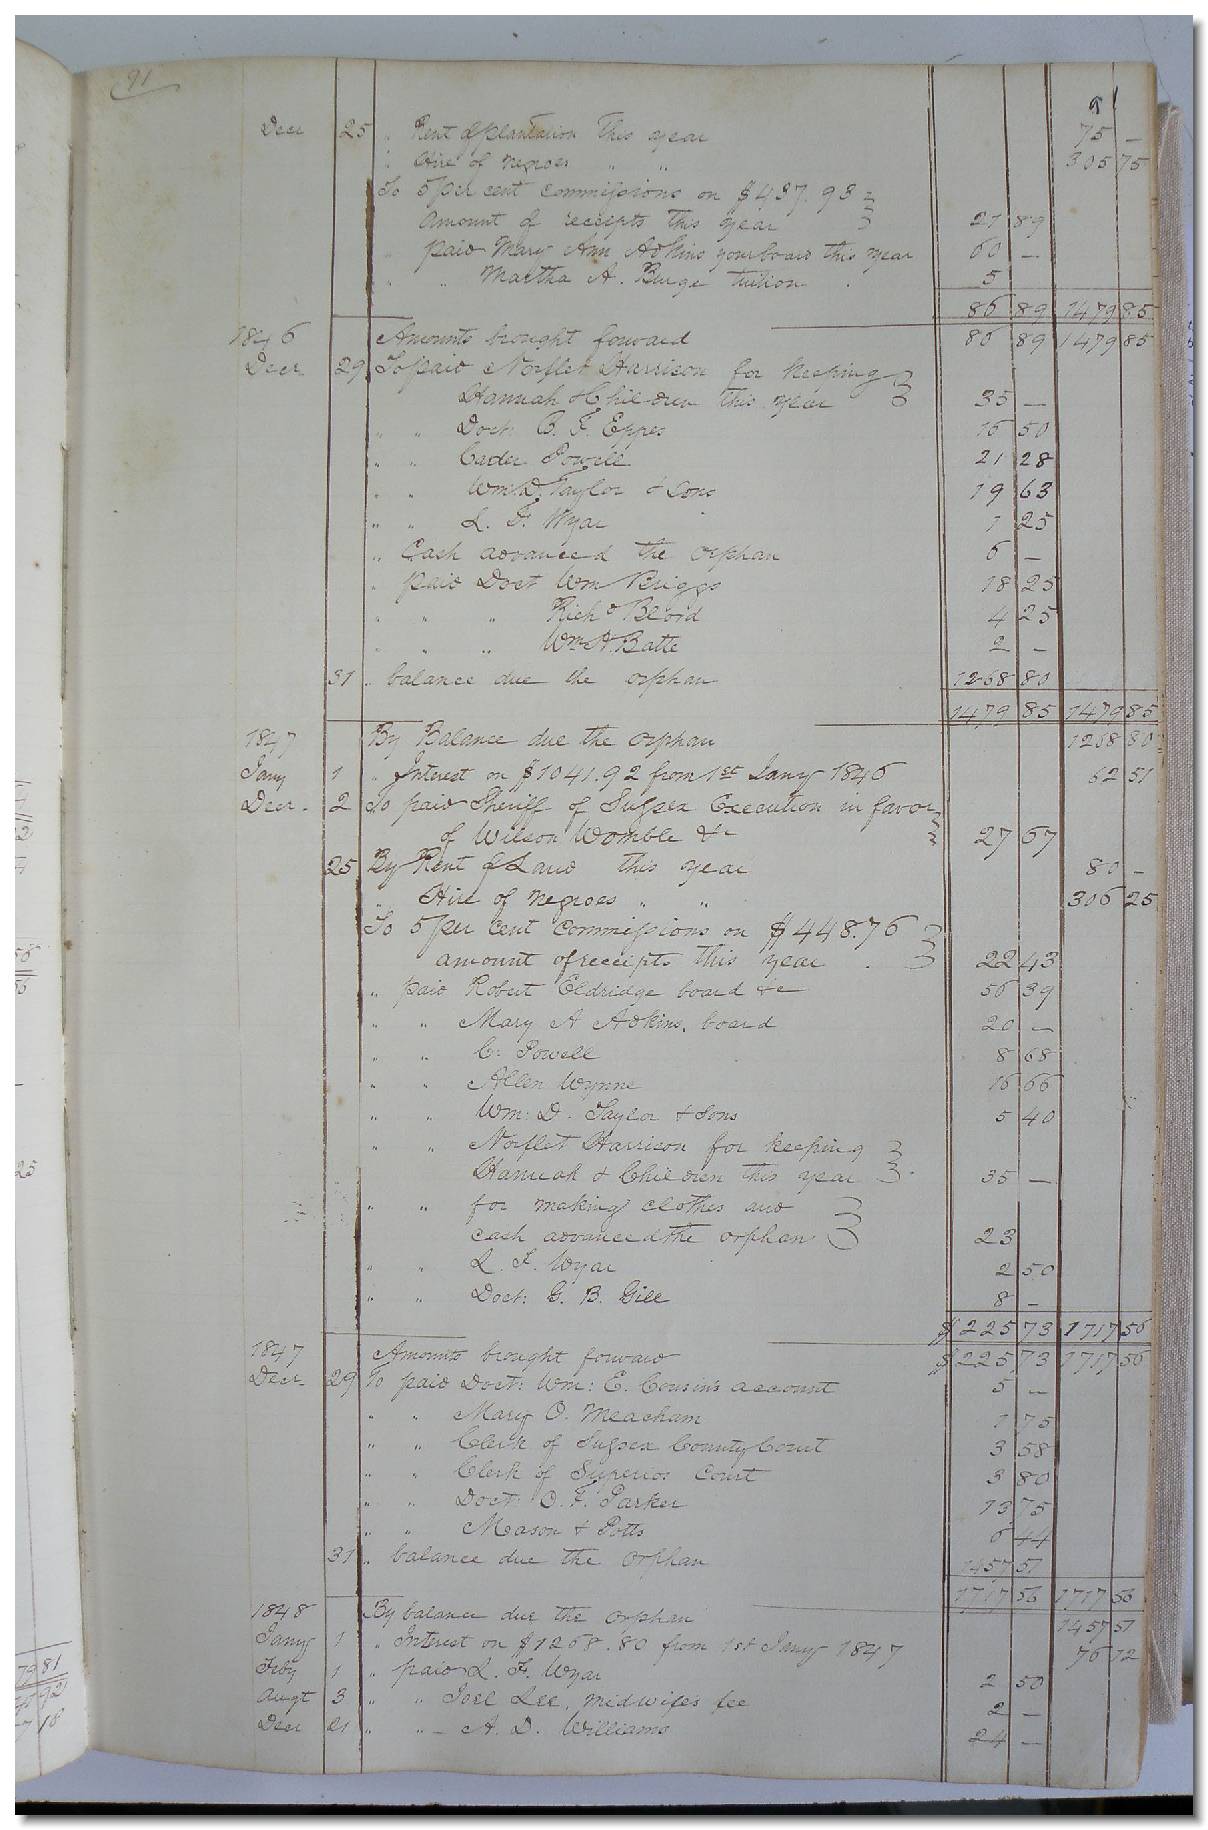 91
91
Decr 25 " Rent of plantation this year 75 —
" Hire of negroes " " 305 75
To 5 per cent commissions on $437.93
amount of receipts this year 21 89
" paid Mary Ann Adkins your board this year 60 —
" " Martha A. Burge tuition 5
86 89 1479 85
1846 Amounts brought forward 86 89 1479 85
Decr 29 To paid Norflet Harrison for keeping
Hannah & Children this year 35 —
" " Doct: B. F. Eppes 16 50
" " Cader Powell 21 28
" " Wm D. Taylor & Sons 19 63
" " L. F. Wyar 1 25
" Cash advanced the orphan 6 —
" paid Doct Wm Briggs 18 25
" " " Richd Blord 4 25
" " " Wm A. Batte 2 —
31 " balance due the orphan 1268 80
1479 85 1479 85
1847 By Balance due the orphan 1268 80
Jany 1 " Interest on $1041.92 from 1st Jany 1846 62 51
Decr. 2 To paid Sheriff of Sussex Execution in favor
of Wilson Womble &c 27 67
25 By Rent of Land this year 80 —
" Hire of negroes " " 306 25
To 5 per cent commissions on $448.76
amount of receipts this year 22 43
" paid Robert Eldridge board &c 56 39
" " Mary A Adkins, board 20 —
" " C. Powell 8 68
" " Allen Wynne 16 66
" " Wm: D. Taylor & Sons 5 40
" " Norflet Harrison for keeping
Hannah & Children this year 35 —
" " for making clothes and
cash advanced the orphan 23
" " L. F. Wyar 2 50
" " Doct: G. B. Gill 8 —
$225 73 1717 56
1847 Amounts brought forward $225 73 1717 56
Decr. 29 To paid Doct: Wm: E. Cousin's account 5 —
" " Mary O. Meacham 1 75
" " Clerk of Sussex County Court 3 58
" " Clerk of Superior Court 3 80
" " Doct: O. F. Parker 13 75
" " Mason & Potts 6 44
31 " balance due the orphan 1457 51
1717 56 1717 56
1848 By balance due the orphan 1457 51
Jany 1 " Interest on $1268.80 from 1st Jany 1847 76 12
Feby 1 " paid L. F. Wyar 2 50
Augt 3 " " Joel Lee, midwifes fee 2 —
Decr 21 " " — A. D. Williams 24 —